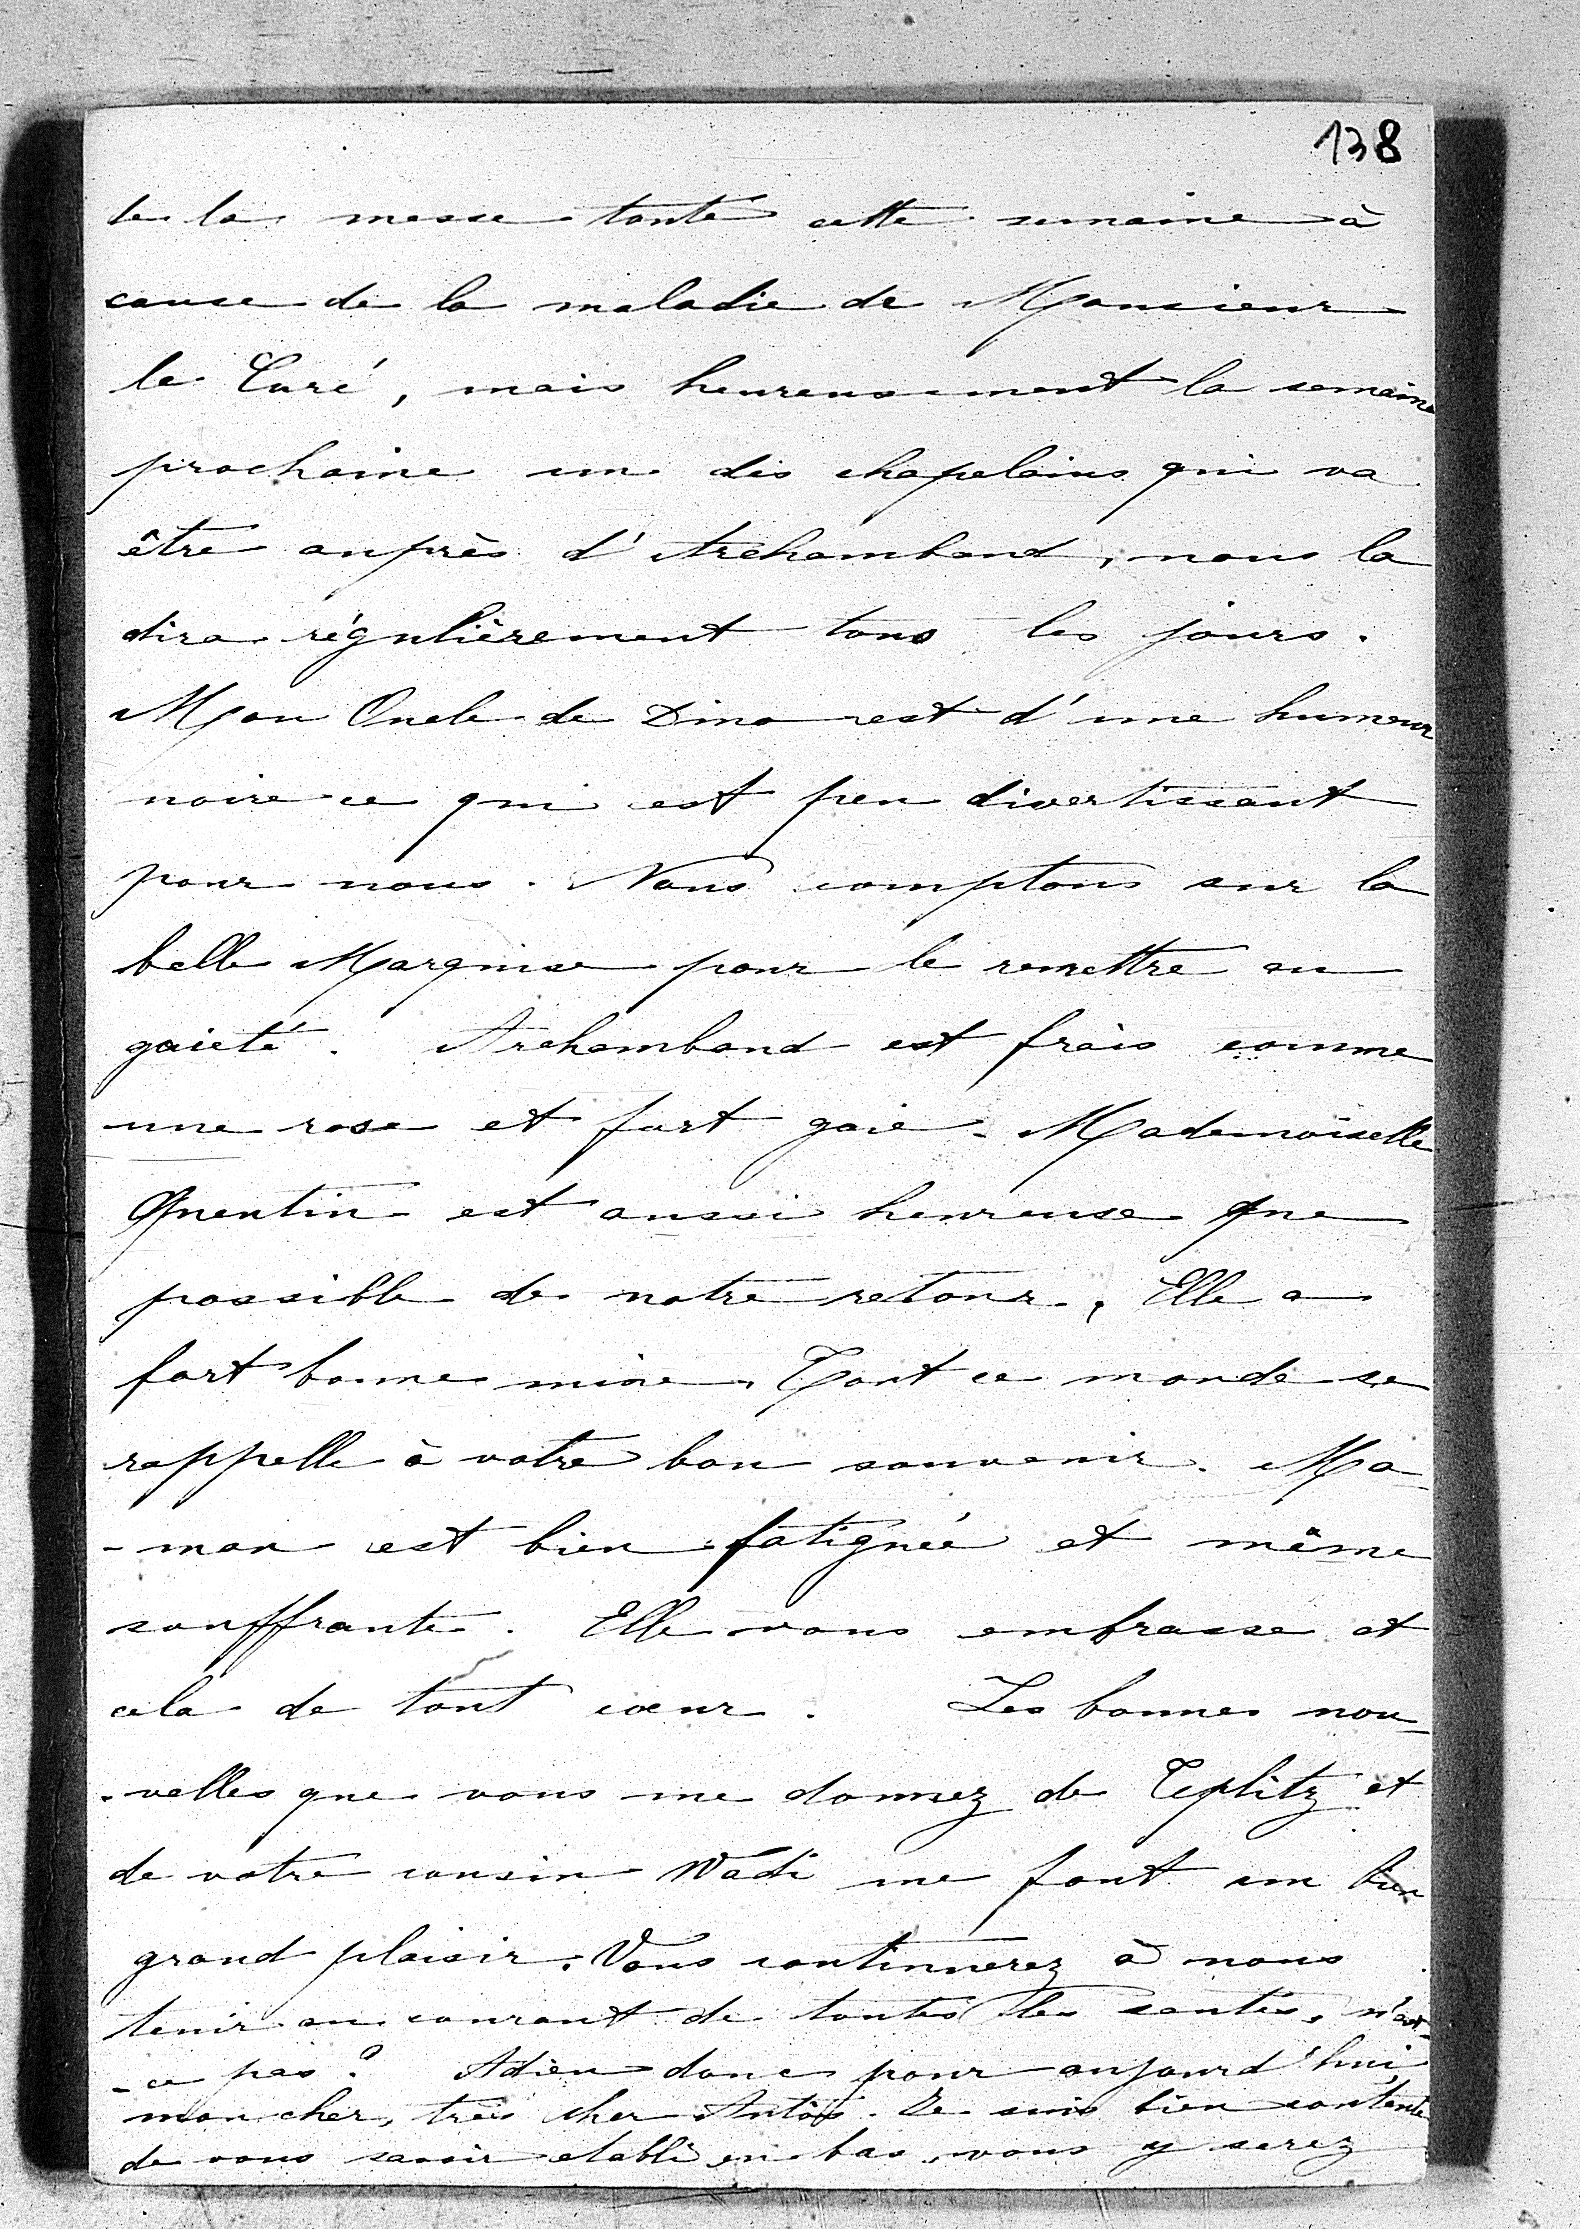 138
de la messe toute cette semaine à
cause de la maladie de Monsieur
le Curé, mais heureusement la semaine
prochaine un des chapelains qui va
être auprès d'Archambaud, nous la
dira régulièrement tous les jours.
Mon Oncle de Dino est d'une humeur
noire ce qui est peu divertissant
pour nous. Nous comptons sur la
belle Marquise pour le remettre en
gaieté. Archambaud est frais comme
une rose et fort gaie. Mademoiselle
Quentin est aussi heureuse que
possible de notre retour, Elle a
fort bonne mine. Tout ce monde se
rappelle à votre bon souvenir. Ma-
-man est bien fatiguée et même
souffrante. Elle vous embrasse et
cela de tout cœur. Les bonnes nou-
-velles que vous me donnez de Teplitz et
de votre cousin Wadi me font un bien
grand plaisir. Vous continuerez à nous
tenir au courant de toutes les santés, n'est-
-ce pas? Adieu donc pour aujourd'hui,
mon cher, très cher Antoś. Je suis bien contente
de vous savoir etabli en bas, vous y serez